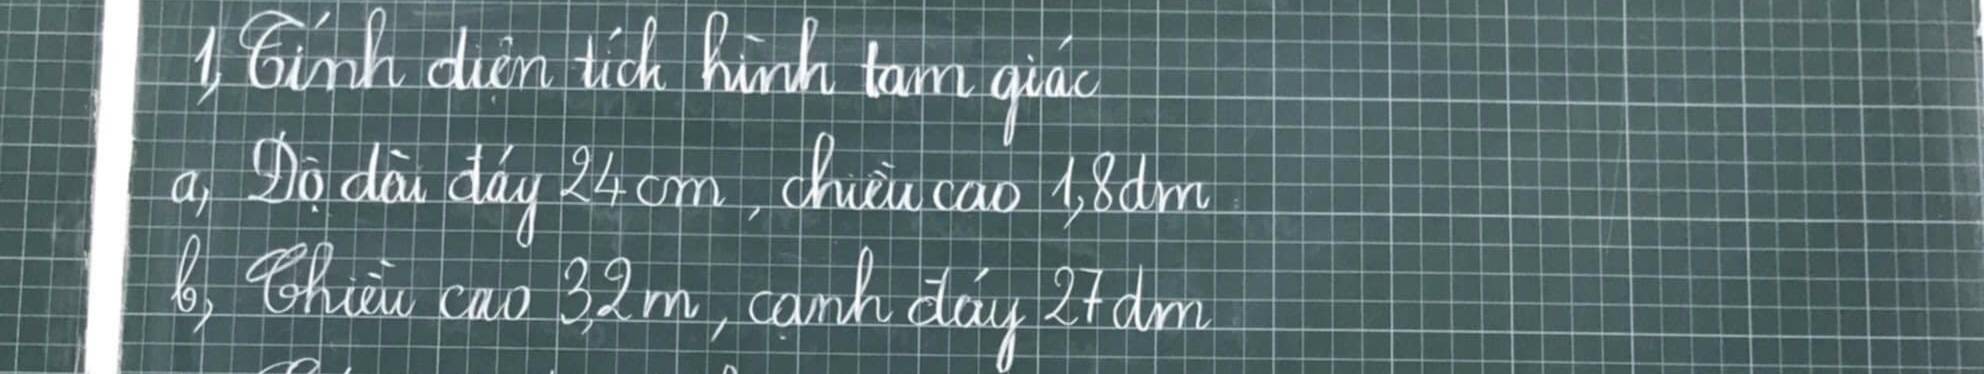 1, Tính diện tích hình tam giác
a, Độ dài đáy 24 cm, chiều cao 1,8dm
b, Chiều cao 3,2m, cạnh đáy 27dm